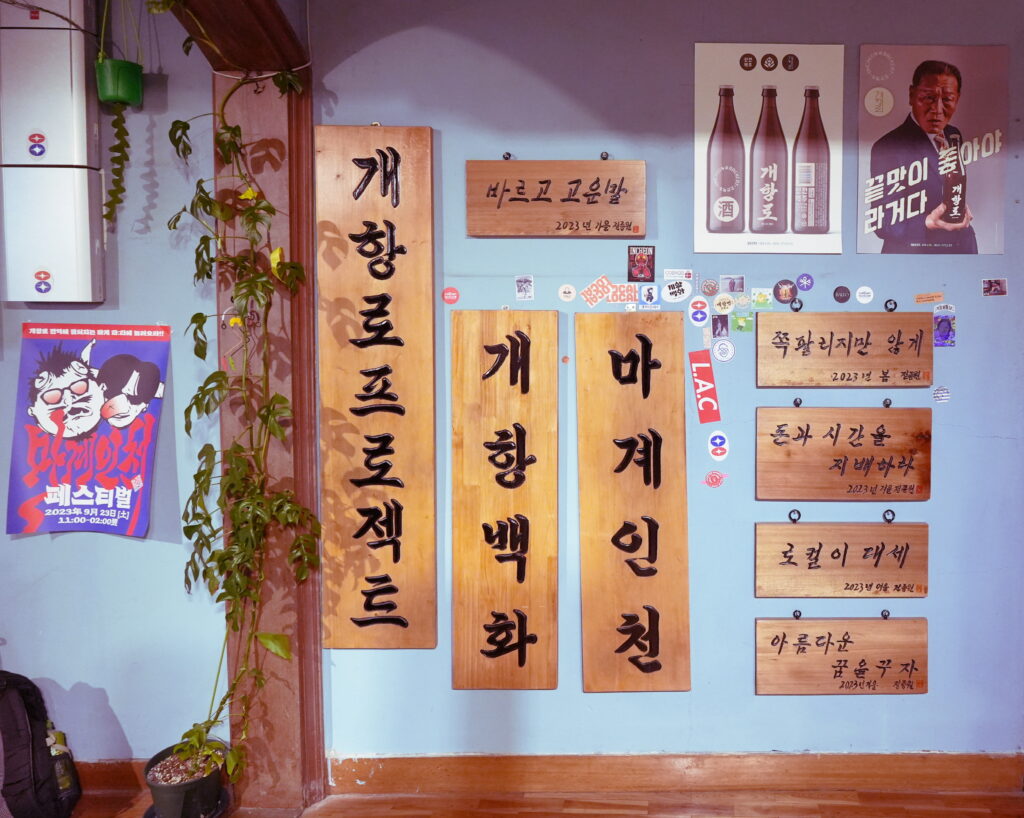 개항로프로젝트
바르고 고운말
2023년 가을 전종원
개항백화
마계인천
쪽팔리지만 않게
2023년 봄 전종원
돈과 시간을
지배하라
2023년 가을 전종원
로컬이 대세
2023년 여름 전종원
아름다운
꿈을꾸자
2023년 가을 전종원
마계인천
페스티벌
2023年 9月 23日 [土]
11:00-02:00
酒
개항로
끝맛이 좋아야
라거다
개항로
L.A.C
LOCAL